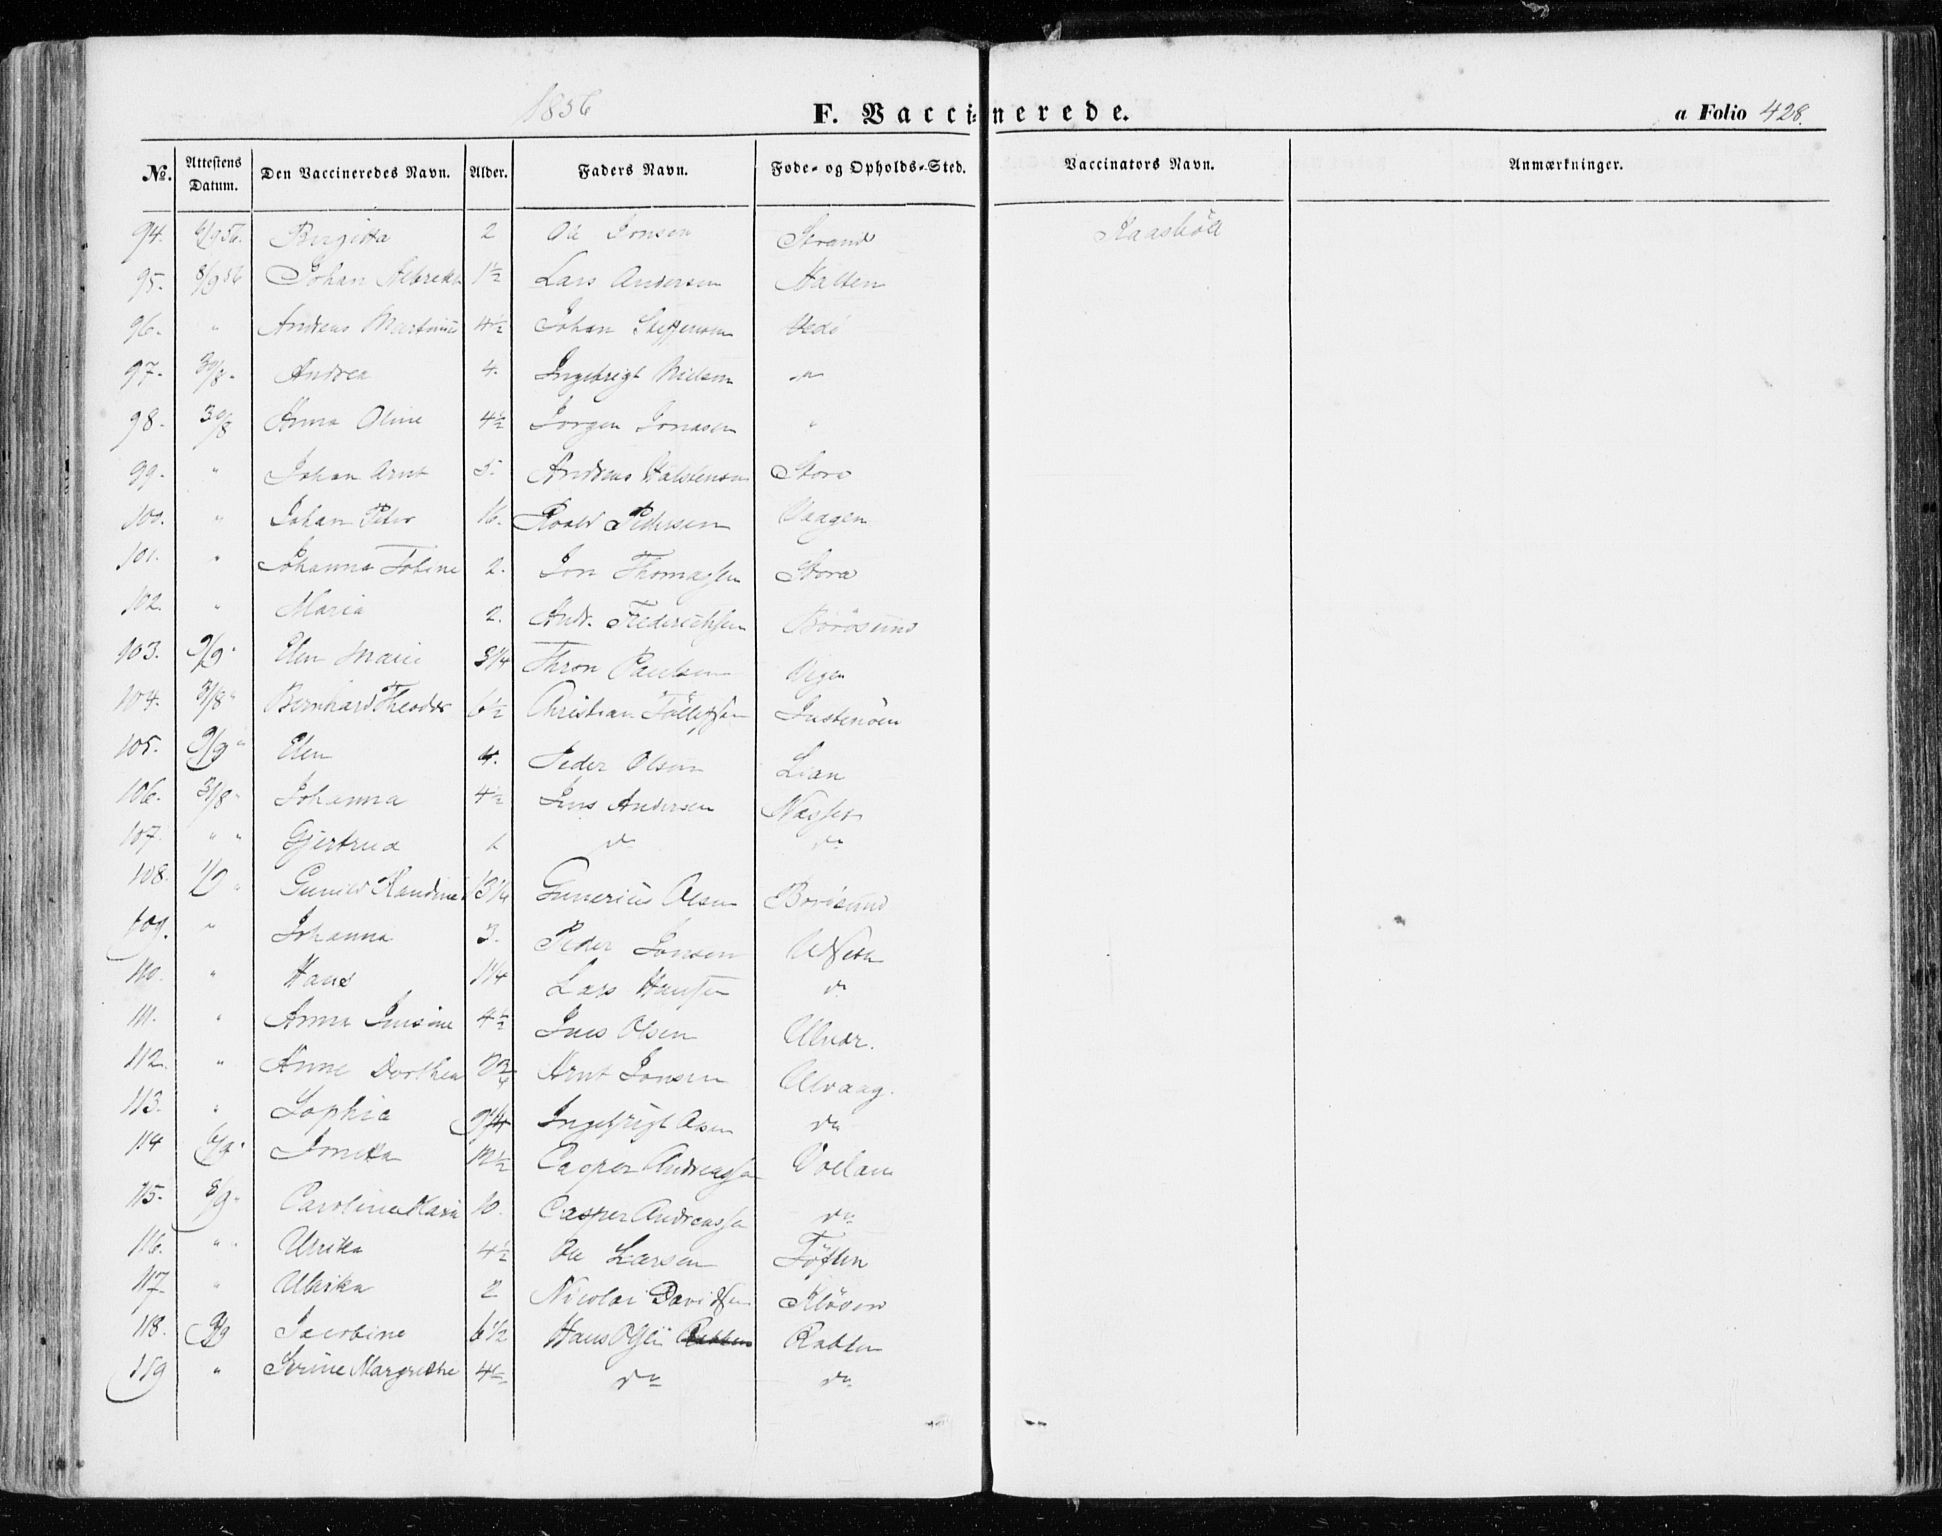 1856
F. Vaccinerede.
a Folio 428.
No. Attestens Datum. Den Vaccineredes Navn. Alder. Faders Navn. Føde- og Opholds-Sted. Vaccinators Navn. Anmærkninger.
94. 6/9 56. Birgitta 2 Ole Jonsen Strand
95. 8/9 56 Johan 1½ Lars Andersen Halten
96. " Andreas Martinus 4½ Johan Steffensen
97. 30/8 Andrea 4. Ingebrigt Nielsen "
98. 30/8 Anna Oline 4½ Jørgen Jonasen "
99. " Johan Arnt 5. Andreas Halstensen
100. " Johan Peter 16. Roald Pedersen Vaagen
101. " Johanna Tobine 2. Jon Thomassen
102. " Maria 2. Andr. Frederichsen Börösund
103. 9/9 " Elen Marie 3¼ Thron Paulsen
104. 31/8 " Bernhard Theodor 6½ Christian Tollefsen
105. 9/9 " Elen 4. Peder Olsen Lian
106. 31/8 " Johanna 4½ Jens Andersen
107. " " Gjertrud 1 do do
108. " Gunild 13¼ Gunerius Olsen Borösund
109. " Johanna 3. Peder Jonsen
110. " Hans 1¼ Lars Hansen do
111. " Anna Jensine 4½ Jens Olsen
112. " Anne Dorthea 2¾ Arnt Jonsen Ulvaag.
113. " Sophia 9¼ Ingebrigt Olsen do
114 6/9 " Jonetta 12½ Casper Andreassen
115. 8/9 " Caroline Maria 10. Casper Andreassen do
116. " " Ulrika 4½ Ole Larsen Töften
117. " Ulrika 2 Nicolai Davidsen Kløven
118. 9/9 Jacobine 6½ Hans Rabben
119 " Serine Margrethe 4½ do do